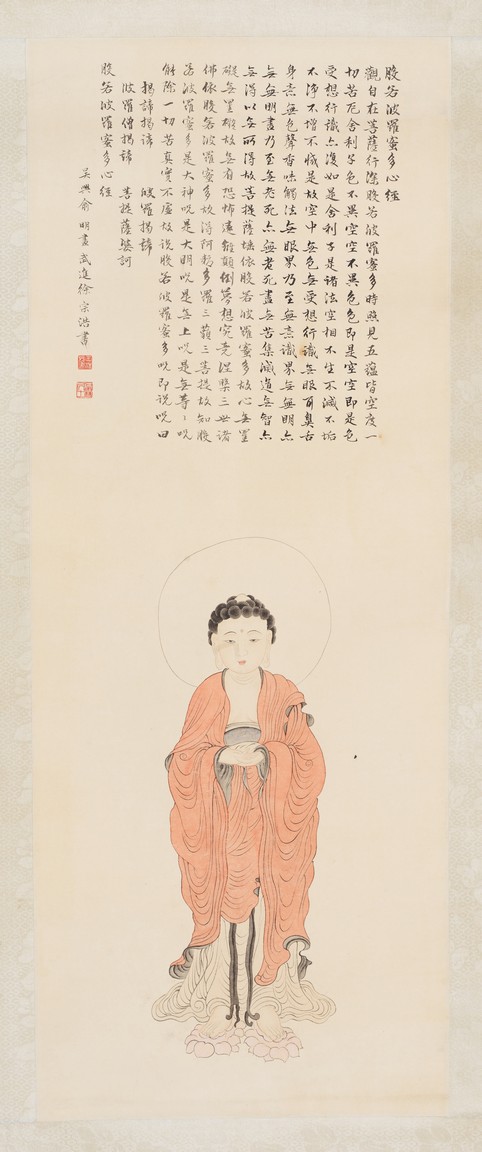 般若波羅蜜多心經
觀自在菩薩行深般若波羅蜜多時照見五蘊皆空度一
切苦厄舍利子色不異空空不異色色即是空空即是色
受想行識亦復如是舍利子是諸法空相不生不滅不垢
不淨不增不減是故空中無色無受想行識無眼耳鼻舌
身意無色聲香味觸法無眼界乃至無意識界無無明亦
無無明盡乃至無老死亦無老死盡無苦集滅道無智亦
無得以無所得故菩提薩埵依般若波羅蜜多故心無罣
礙無罣礙故無有恐怖遠離顛倒夢想究竟涅槃三世諸
佛依般若波羅蜜多故得阿耨多羅三藐三菩提故知般
若波羅蜜多是大神呪是大明呪是無上呪是無等〻呪
能除一切苦真實不虛故說般若波羅蜜多呪即說呪曰
揭諦揭諦 波羅揭諦
波羅僧揭諦 菩提薩婆訶
般若波羅蜜多心經
吳興俞明畫武進徐宗浩書